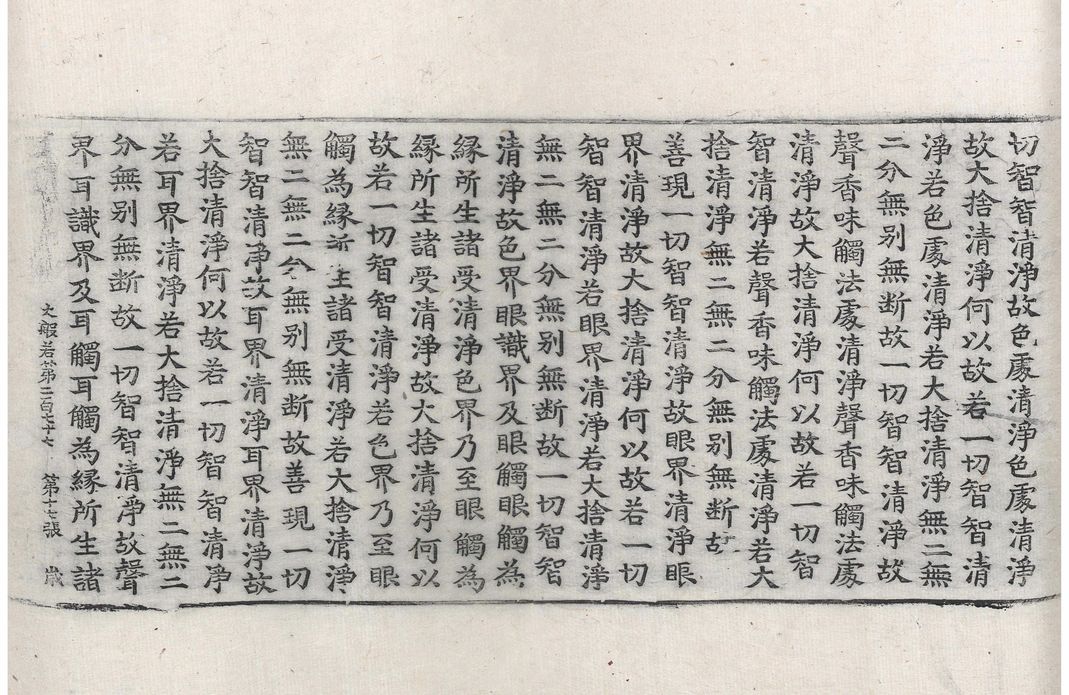 切智智清淨故色處清淨色處清淨
故大捨清淨何以故若一切智智清
淨若色處清淨若大捨清淨無二無
二分無别無断故一切智智清淨故
聲香味觸法處清淨聲香味觸法處
清淨故大捨清淨何以故若一切智
智清淨若聲香味觸法處清淨若大
捨清淨無二無二分無别無断故
善現一切智智清淨故眼界清淨眼
界清淨故大捨清淨何以故若一切
智智清淨若眼界清淨若大捨清淨
無二無二分無别無断故一切智智
清淨故色界眼識界及眼觸眼觸為
縁所生諸受清淨色界乃至眼觸為
縁所生諸受清淨故大捨清淨何以
故若一切智智清淨若色界乃至眼
觸為縁所生諸受清淨若大捨清淨
無二無二分無别無断故善現一切
智智清淨故耳界清淨耳界清淨故
大捨清淨何以故若一切智智清淨
若耳界清淨若大捨清淨無二無二
分無别無断故一切智智清淨故聲
界耳識界及耳觸耳觸為縁所生諸
大般若第二百七十七 第十七張 歲